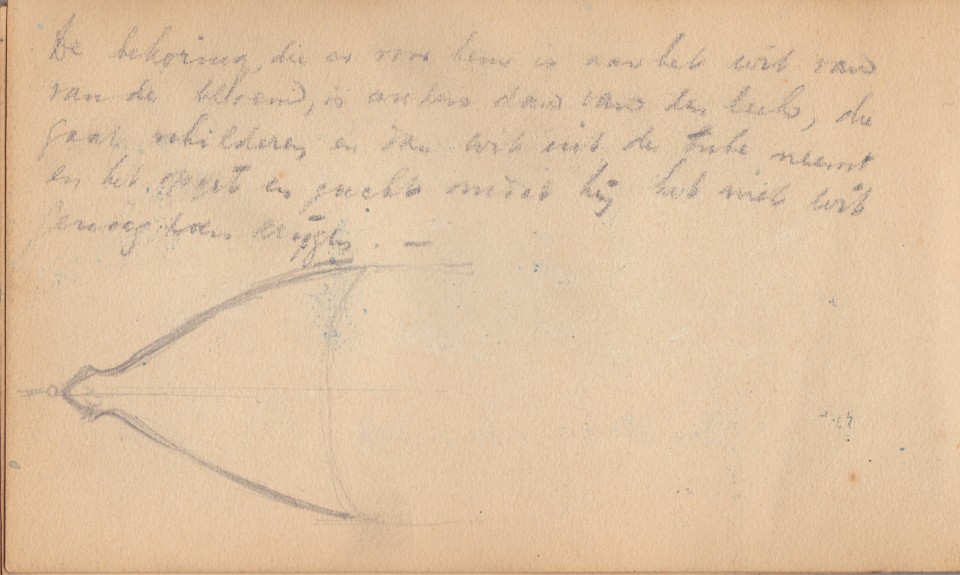 De bekoring, die er voor hem is aan het wit van
van de bloem, is anders dan van den leek, die
gaat schilderen, en dan wit uit de tube neemt
en het en zucht omdat hij het niet wit
genoeg kan krijgen. —